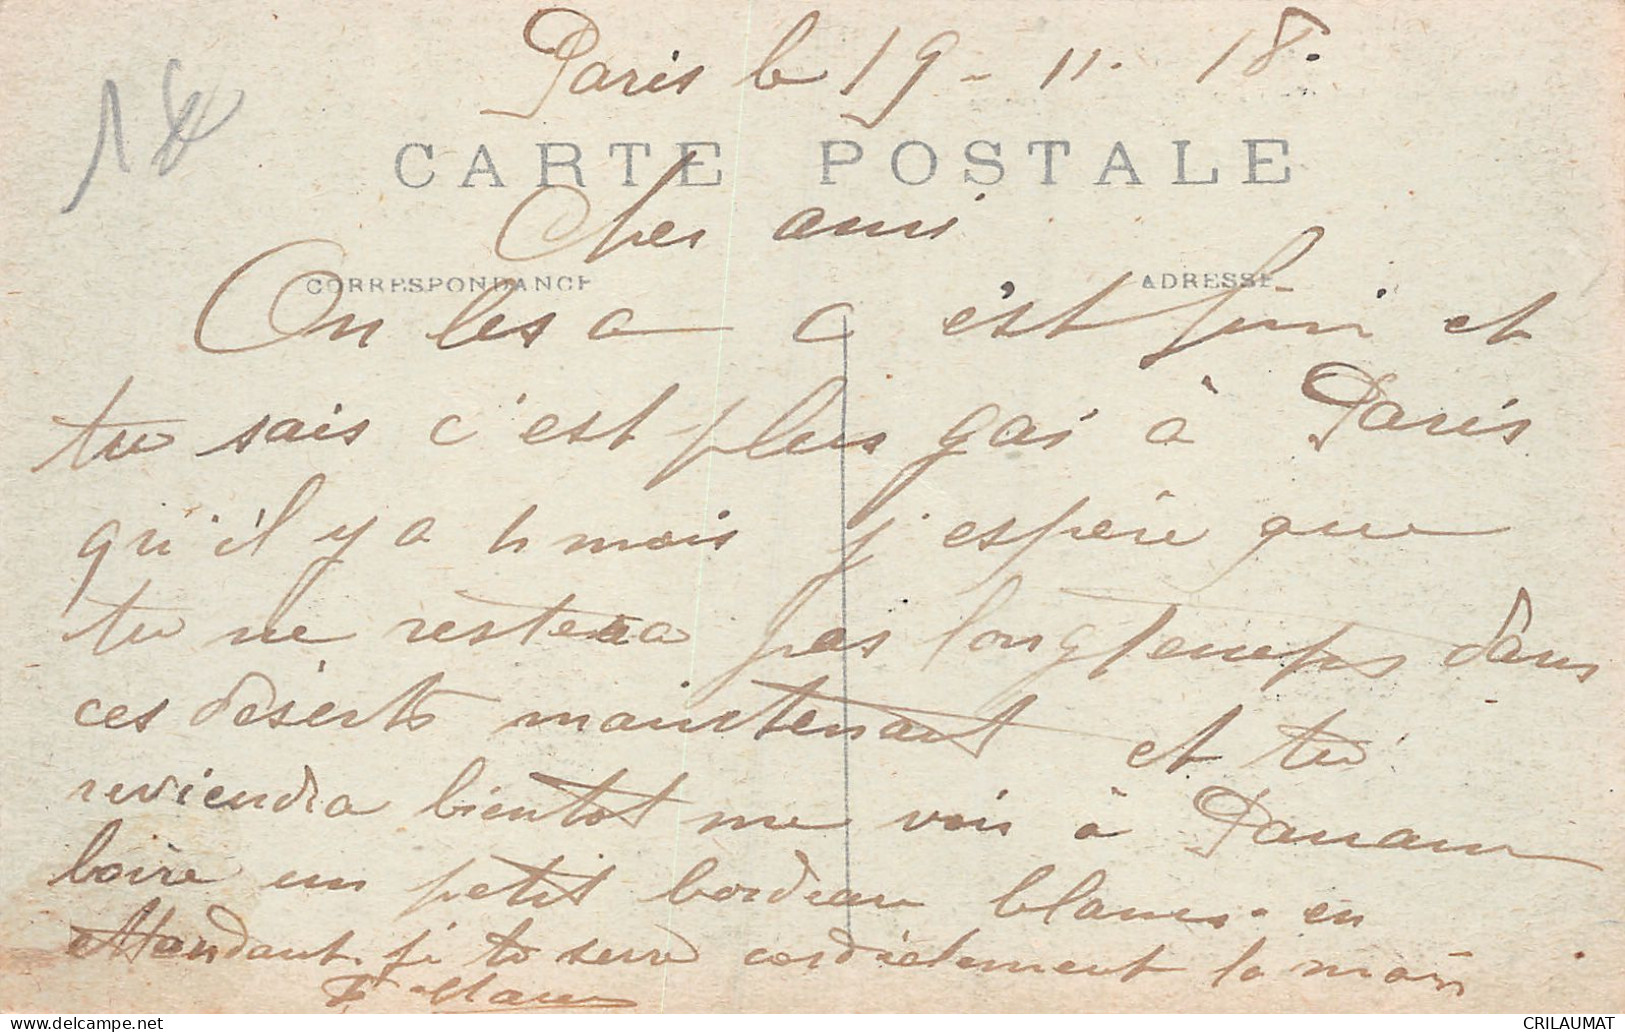 Paris le 19 - 11. 18.
18
CARTE POSTALE
Cher ami
CORRESPONDANCE ADRESSE
On les a c'est fini et
tu sais c'est plus gai à Paris
qu'il y a 4 mois j'espère que
tu ne restera pas longtemps dans
ces déserts maintenant et tu
reviendra bientot me voir à Panam
boire un petit bordeau blanc. en
attendant je te serre cordialement la main
CRILAUMAT